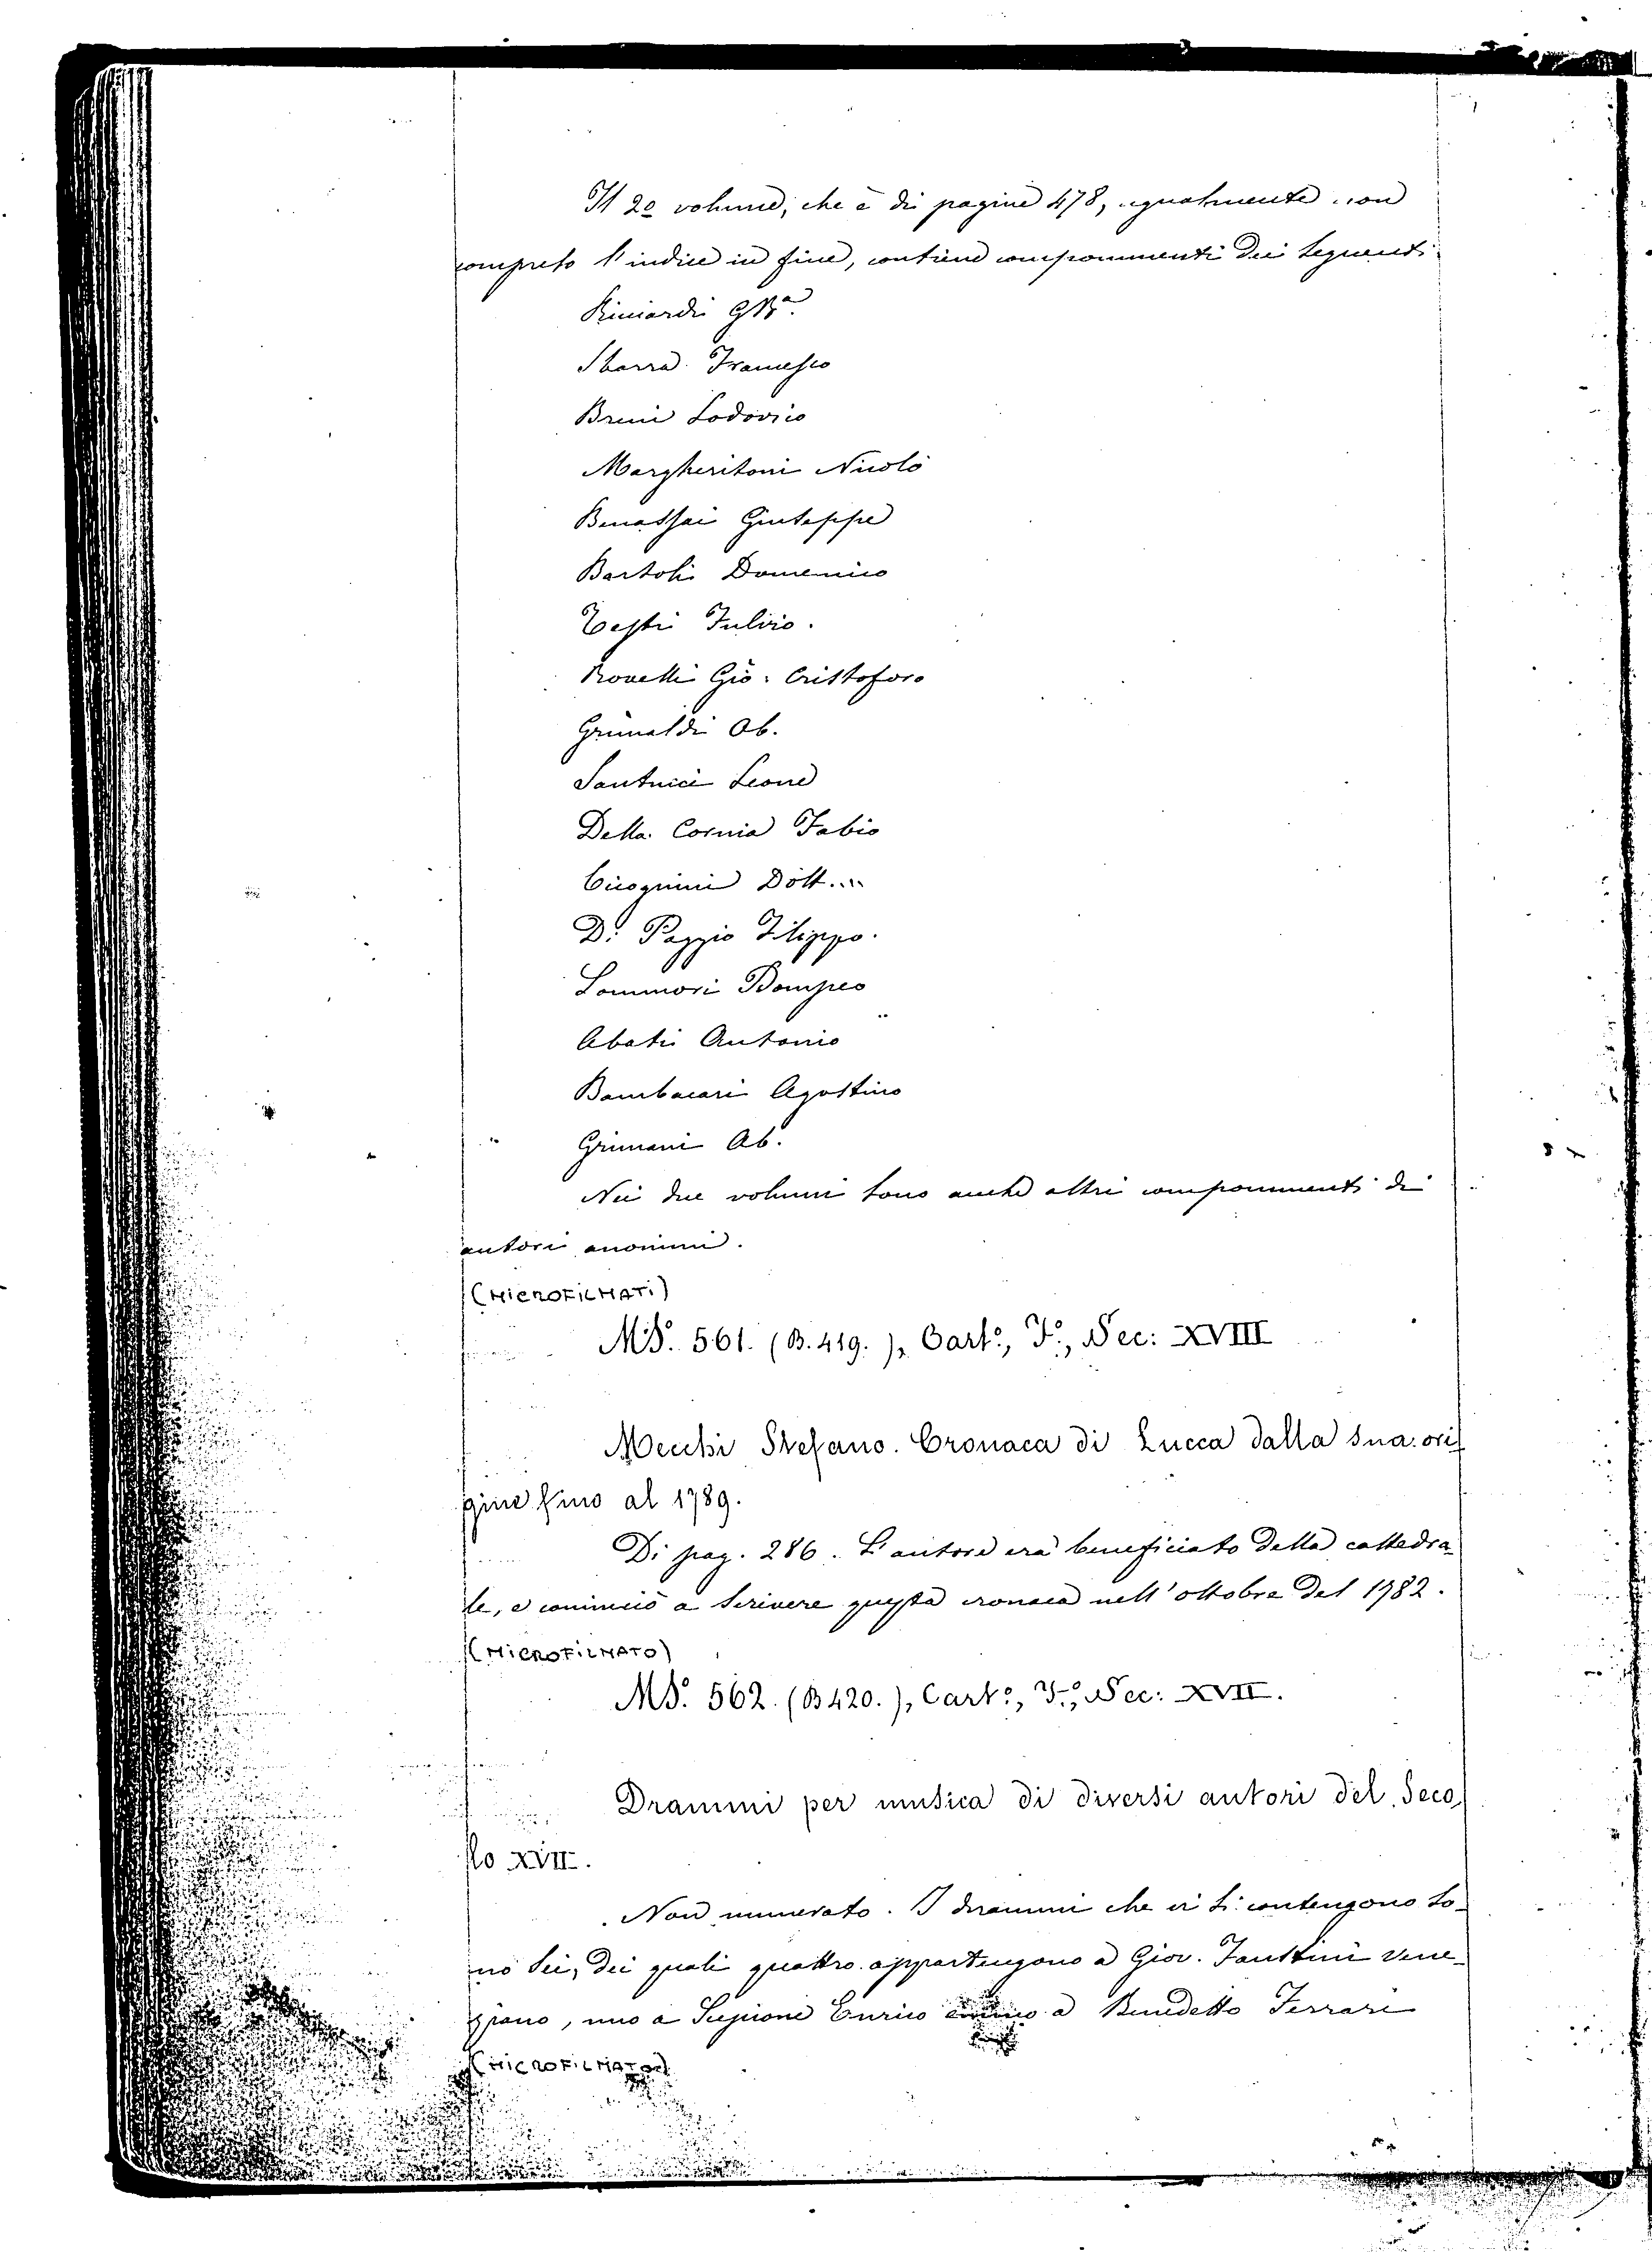 Il 2º volume, che è di pagine 478, ugualmente non
compreso l'indice in fine, contiene componimenti dei seguenti
Ricciardi GBª.
Sbarra Francesco
Breni Lodovico
Margheritoni Nicolò
Benassai Giuseppe
Bartoli Domenico
Testi Fulvio.
Rovelli Gio: Cristoforo
Grimaldi Ab.
Santucci Leone
Della Cornia Fabio
Cicognini Dott....
Di Poggio Filippo.
Sammori Pompeo
Abati Antonio
Bambacari Agostino
Grimani Ab.
Nei due volumi sono anche altri componimenti di
autori anonimi.
(MICROFILMATI)
MS. 561. (B. 419.), Cartº, Fº, Sec: XVIII
Mecchi Stefano. Cronaca di Lucca dalla sua ori
gine fino al 1789.
Di pag. 286. L'autore era beneficiato della cattedra-
le, e cominciò a scrivere questa cronaca nell'ottobre del 1782.
(MICROFILMATO)
MS. 562. (B 420.), Cartº, Fº, Sec: XVII.
Drammi per musica di diversi autori del Seco
lo XVII.
Non numerato. I drammi che vi si contengono so-
no sei, dei quali quattro appartengono a Giov. Faustini vene-
ziano, uno a Scipione Enrico a Benedetto Ferrari
(MICROFILMATO)